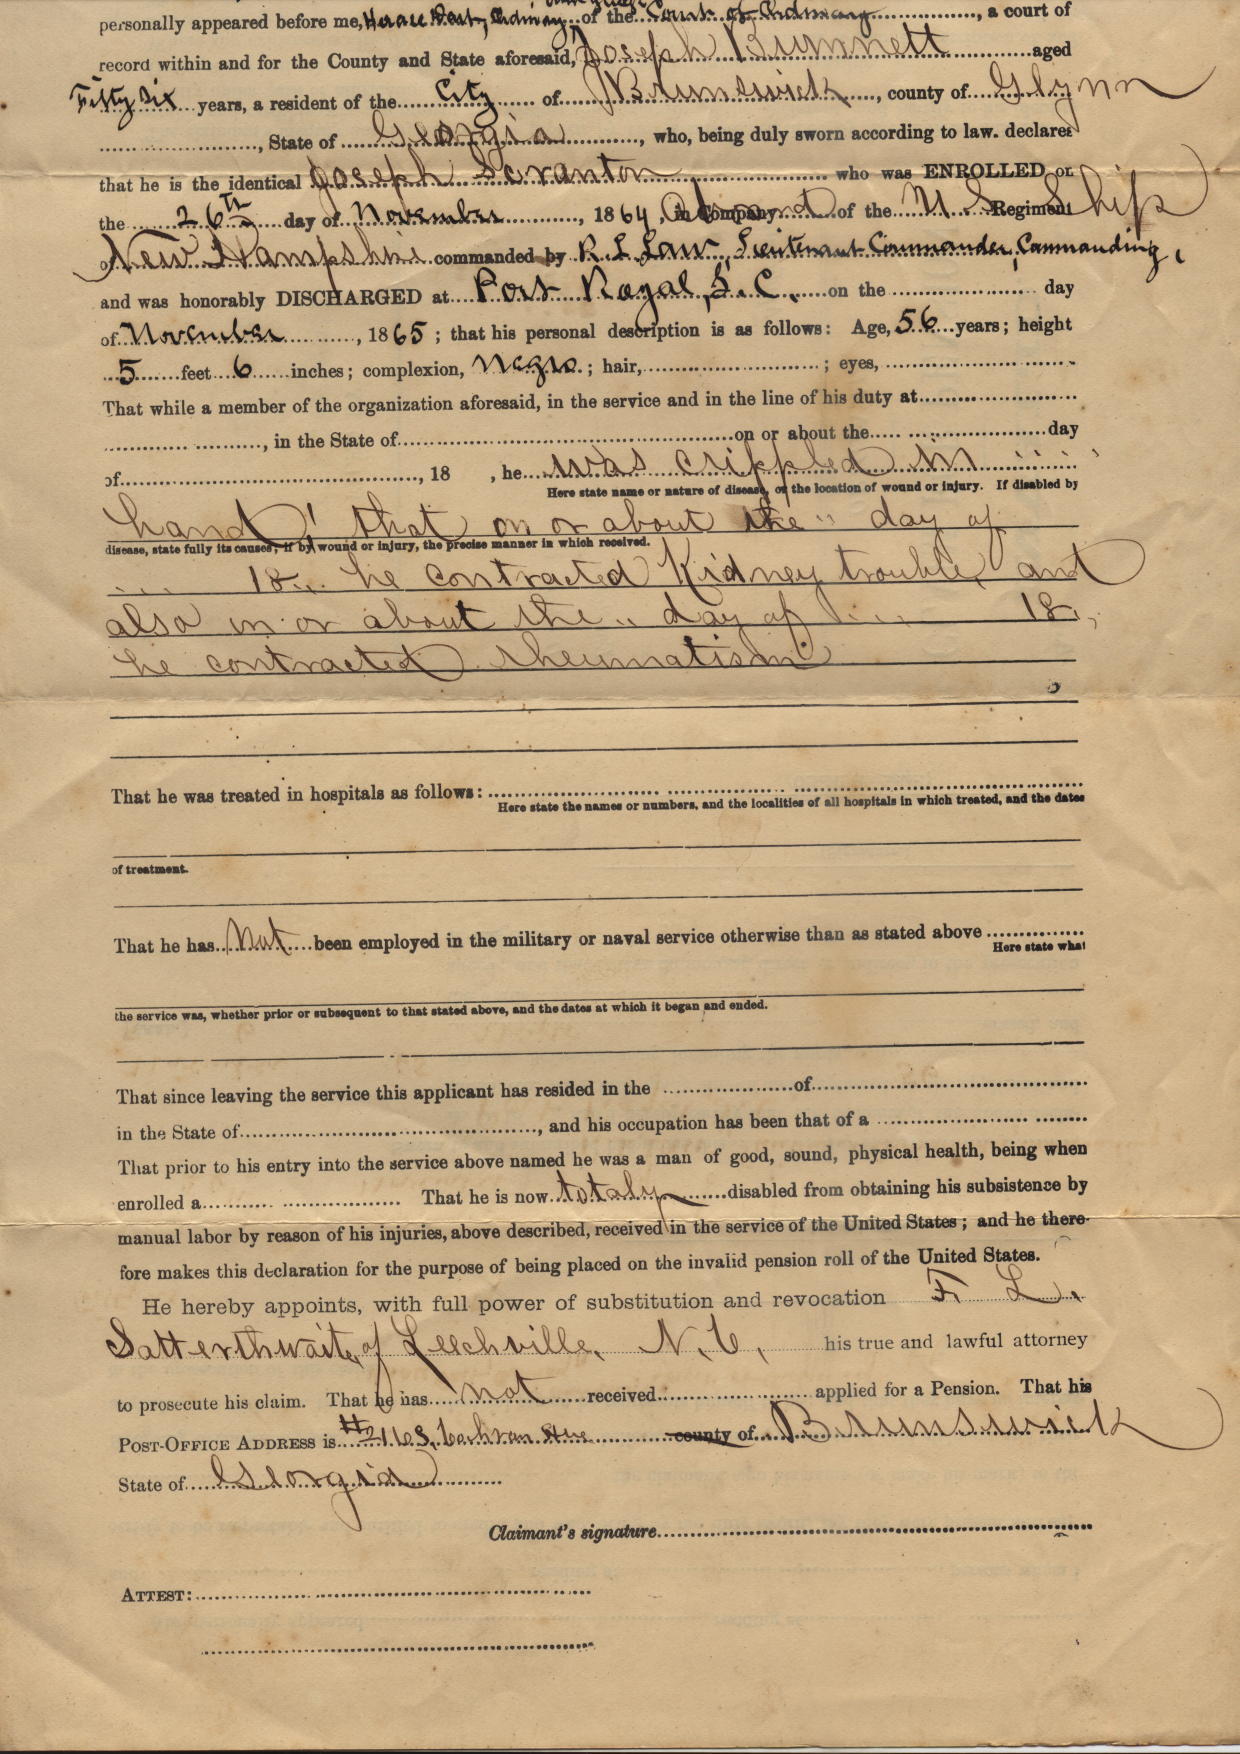 personally appeared before me, Horace Dart, Ordinary of the Court of Ordinary, a court of
record within and for the County and State aforesaid, Joseph Bunnett aged
Fifty Six years, a resident of the City of Brunswick, county of Glynn
, State of Georgia, who, being duly sworn according to law. declares
that he is the identical Joseph Scranton who was ENROLLED on
the 26th day of November, 1864, in Company of the U.S. Regiment Ship
of New Hampshire commanded by R L Law, Lieutenant Commander, Commanding,
and was honorably DISCHARGED at Port Royal, S.C. on the day
of November, 1865; that his personal description is as follows: Age, 56 years; height
5 feet 6 inches; complexion, Negro; hair, ; eyes,
That while a member of the organization aforesaid, in the service and in the line of his duty at
, in the State of on or about the day
of , 18 , he was crippled in
Here state name or nature of disease, or the location of wound or injury. If disabled by
hand; that on or about the " day of
disease, state fully its causes; if by wound or injury, the precise manner in which received.
18 he contracted Kidney trouble, and
also in or about the " day of 18
he contracted rheumatism
That he was treated in hospitals as follows:
Here state the names or numbers, and the localities of all hospitals in which treated, and the dates
of treatment.
That he has Not been employed in the military or naval service otherwise than as stated above
Here state what
the service was, whether prior or subsequent to that stated above, and the dates at which it began and ended.
That since leaving the service this applicant has resided in the of
in the State of , and his occupation has been that of a
That prior to his entry into the service above named he was a man of good, sound, physical health, being when
enrolled a That he is now totaly disabled from obtaining his subsistence by
manual labor by reason of his injuries, above described, received in the service of the United States; and he there-
fore makes this declaration for the purpose of being placed on the invalid pension roll of the United States.
He hereby appoints, with full power of substitution and revocation F. L.
Satterthwaite, of Leechville, N.C. his true and lawful attorney
to prosecute his claim. That he has not received applied for a Pension. That his
POST-OFFICE ADDRESS is #2163, Cochran Ave county of Brunswick
State of Georgia
Claimant's signature
ATTEST: